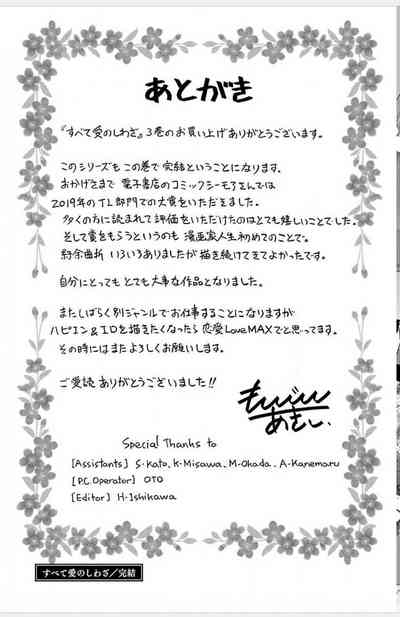 あとがき
『すべて愛のしわざ』3巻のお買い上げありがとうございます。
このシリーズもこの巻で完結ということになります。
おかげさまで 電子書店のコミックシーモアさんでは
2019年のTL部門での大賞をいただきました。
多くの方に読まれて評価をいただけたのはとても嬉しいことでした。
そして賞をもらうというのも 漫画家人生初めてのことで。
紆余曲折 いろいろありましたが描き続けてきてよかったです。
自分にとっても とても大事な作品となりました。
またしばらく別ジャンルでお仕事することになりますが
ハピエン&エロを描きたくなったら 恋愛LoveMAXでと思ってます。
その時にはまたよろしくお願いします。
ご愛読 ありがとうございました!!
Special Thanks to
[Assistants] S・Kato、K・Misawa、M・Okada、A・Kanemaru
[P.C. Operator] OTO
[Editor] H・Ishikawa
すべて愛のしわざ/完結